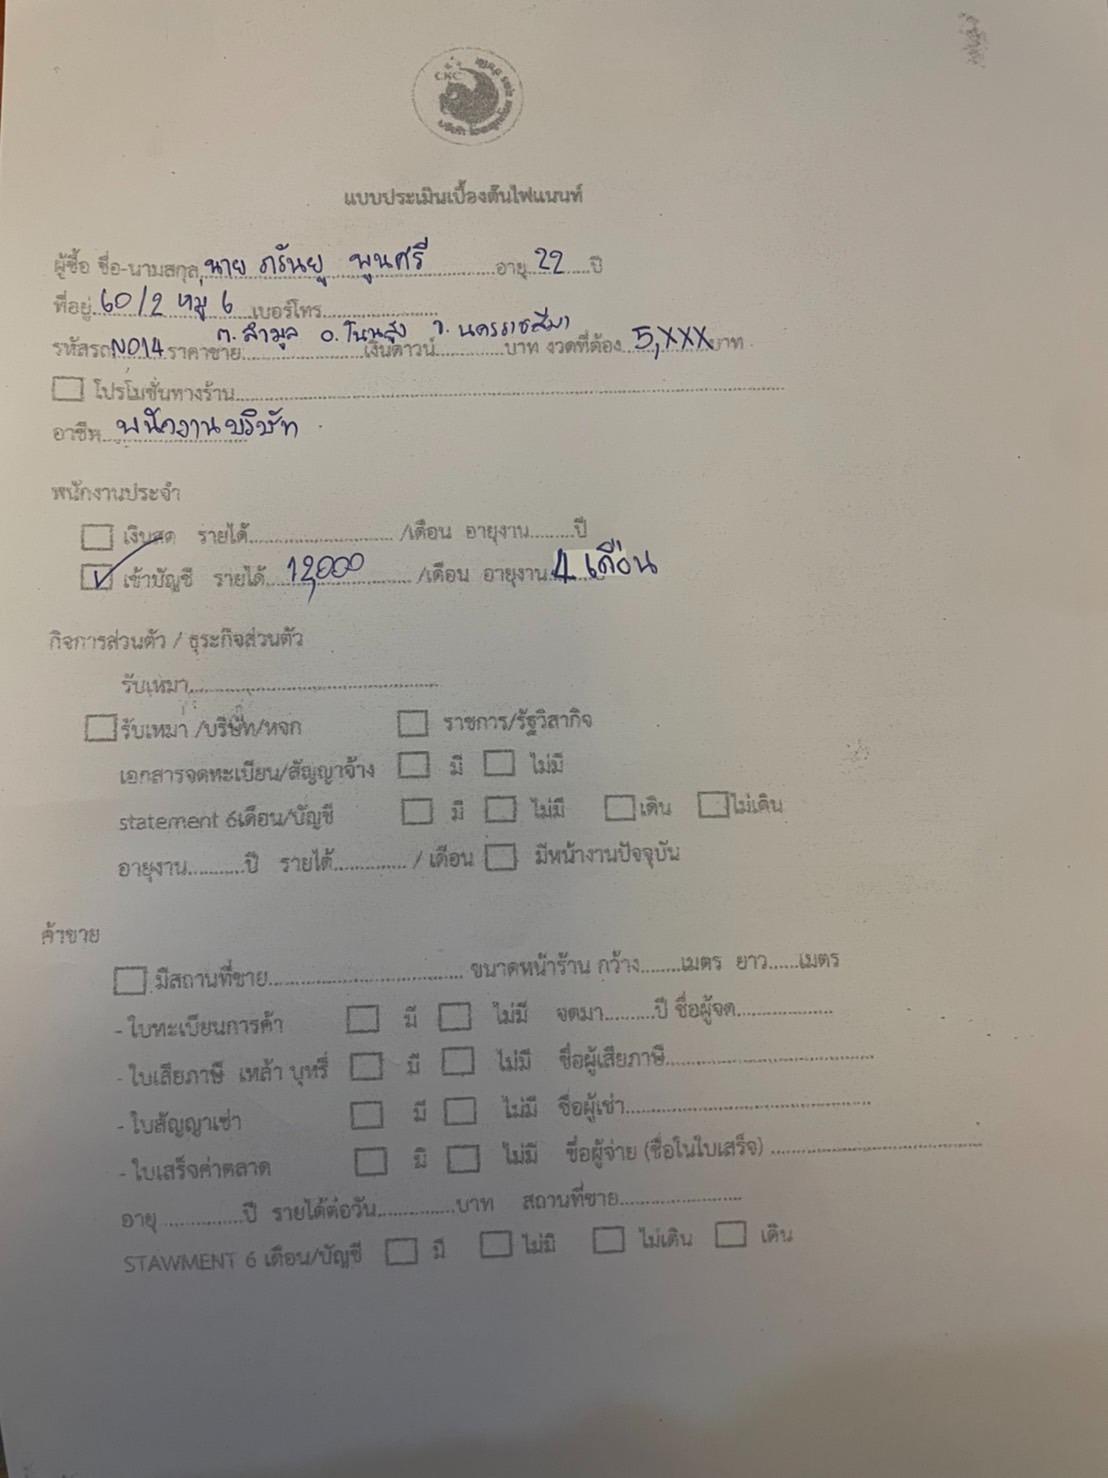 CKC
แบบประเมินเบื้องต้นไฟแนนท์
ผู้ซื้อ ชื่อ-นามสกุล นาย ภรันยู พูนศรี อายุ 22 ปี
ที่อยู่ 60/2 หมู่ 6 เบอร์โทร
ต.ลำมูล อ.โนนสูง จ.นครราชสีมา
รหัสรถ N014 ราคาขาย เงินดาวน์ บาท งวดที่ต้อง 5,XXX บาท
โปรโมชั่นทางร้าน
อาชีพ พนักงานบริษัท
พนักงานประจำ
เงินสด รายได้ /เดือน อายุงาน ปี
เข้าบัญชี รายได้ 12,000 /เดือน อายุงาน 4 เดือน
กิจการส่วนตัว / ธุระกิจส่วนตัว
รับเหมา
รับเหมา /บริษัท/หจก ราชการ/รัฐวิสากิจ
เอกสารจดทะเบียน/สัญญาจ้าง มี ไม่มี
statement 6เดือน/บัญชี มี ไม่มี เดิน ไม่เดิน
อายุงาน ปี รายได้ / เดือน มีหน้างานปัจจุบัน
ค้าขาย
มีสถานที่ขาย ขนาดหน้าร้าน กว้าง เมตร ยาว เมตร
- ใบทะเบียนการค้า มี ไม่มี จดมา ปี ชื่อผู้จด
- ใบเสียภาษี เหล้า บุหรี่ มี ไม่มี ชื่อผู้เสียภาษี
- ใบสัญญาเช่า มี ไม่มี ชื่อผู้เช่า
- ใบเสร็จค่าตลาด มี ไม่มี ชื่อผู้จ่าย (ชื่อในใบเสร็จ)
อายุ ปี รายได้ต่อวัน บาท สถานที่ขาย
STAWMENT 6 เดือน/บัญชี มี ไม่มี ไม่เดิน เดิน